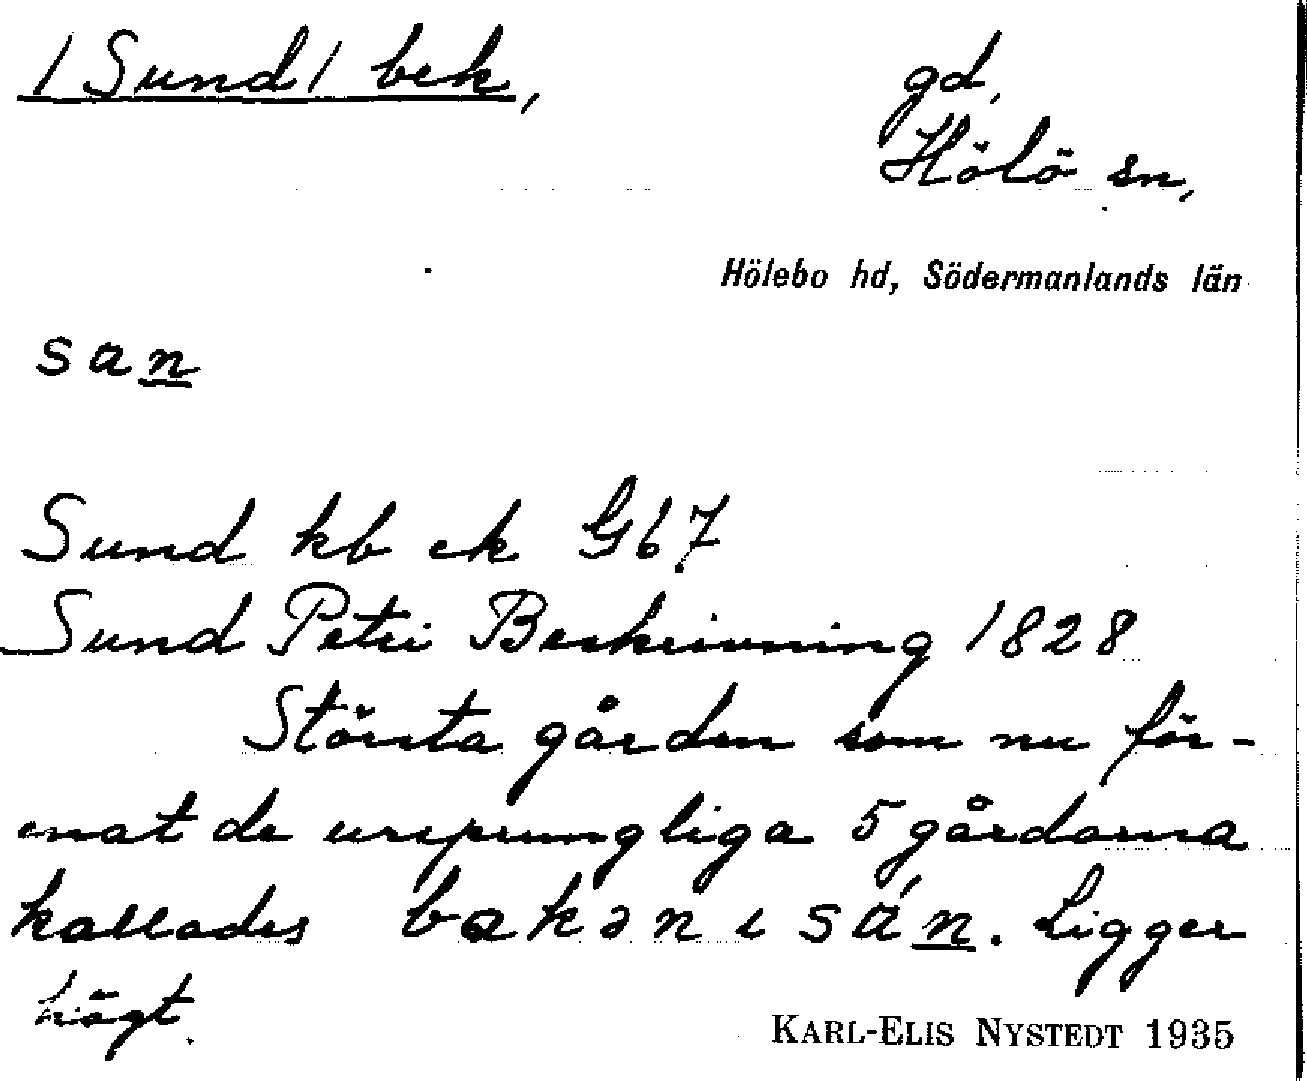 /Sund/ bek,
gd,
Hölö sn,
Hölebo hd, Södermanlands län
san
Sund kb ek Gb7
Sund Petri Beskrivning 1828
Största gården som nu för-
enat de ursprungliga 5 gårdarna
kallades bakən ı sán. Ligger
högt.
KARL-ELIS NYSTEDT 1935